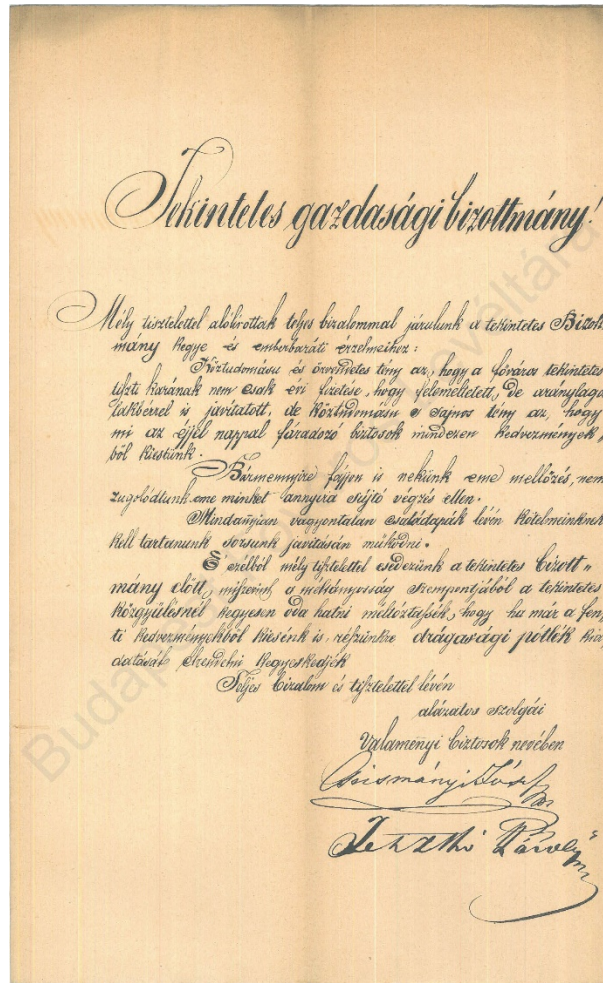 Tekintetes gazdasági bizottmány!
Mély tisztelettel alólirottak teljes bizalommal járulunk a tekintetes Bizott
mány kegye és emberbaráti érzelmeihez:
Köztudomásu és örvendetes tény az, hogy a főváros tekintetes
tiszti karának nem csak évi fizetése, hogy felemeltetett, de aránylagos
lakbérrel is javitatott, de köztudomásu s sajnos tény az, hogy
mi az éjjel nappal fáradozó biztosok mindezen kedvezmények
ből kiestünk.
Bármennyire fájjon is nekünk eme mellőzés, nem
zugolódtunk eme minket annyira sújtó végzés ellen.
Mindannyian vagyontalan családapák lévén kötelmeinknek
kell tartanunk sorsunk javitásán működni.
E czélból mély tisztelettel esedezünk a tekintetes bizott„
mány előtt, miszerint a méltányosság szempontjából a tekintetes
közgyülésnél kegyesen oda hatni méltóztassék, hogy ha már a fen,
ti kedvezményekből kiesénk is, részünkre drágasági pótlék kia
datását elrendelni kegyeskedjék
Teljes bizalom és tisztelettel lévén
alázatos szolgái
Valamennyi biztosok nevében
József
Károly
Budapest Főváros Levéltára